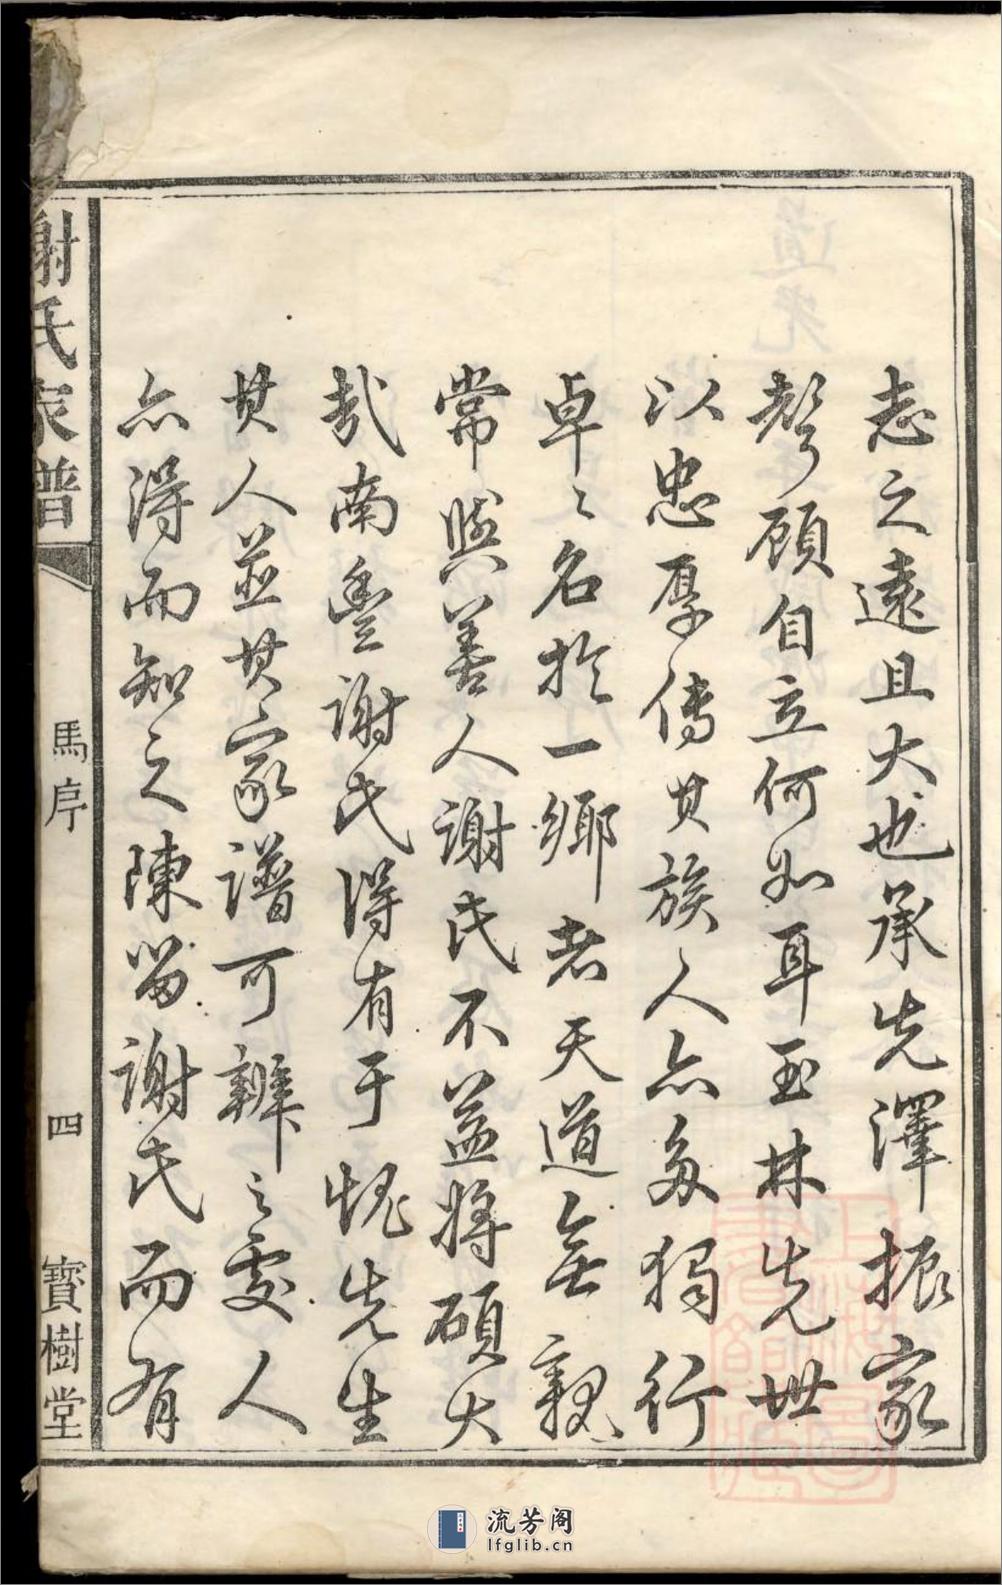 志之遠且大也承先澤振家
聲顧自立何如耳玉林先世
以忠厚傳其族人亦多獨行
卓々名於一鄉者天道無親
常與善人謝氏不益將碩大
哉南豐謝氏得有于愧先生
其人並其家譜可辨之處人
亦得而知之陳留謝氏而有
謝氏家譜
馬序
四
寶樹堂
流芳阁
lfglib.cn